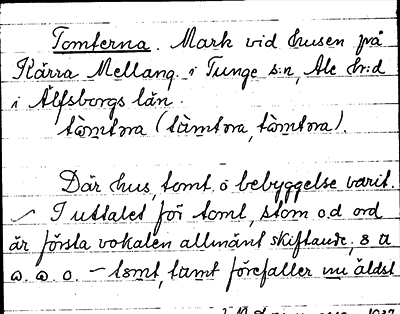 Tomterna. Mark vid husen på
Kärra Mellang. i Tunge s:n, Ale h:d
i Älfsborgs län.
tòmtɷra (tàmtɷra, tòmtɷra).
Där hus, tomt o bebyggelse varit.
I uttalet för tomt, stom o d ord
är första vokalen allmänt skiftande, s a
o. – tomt, tamt förefaller nu äldst